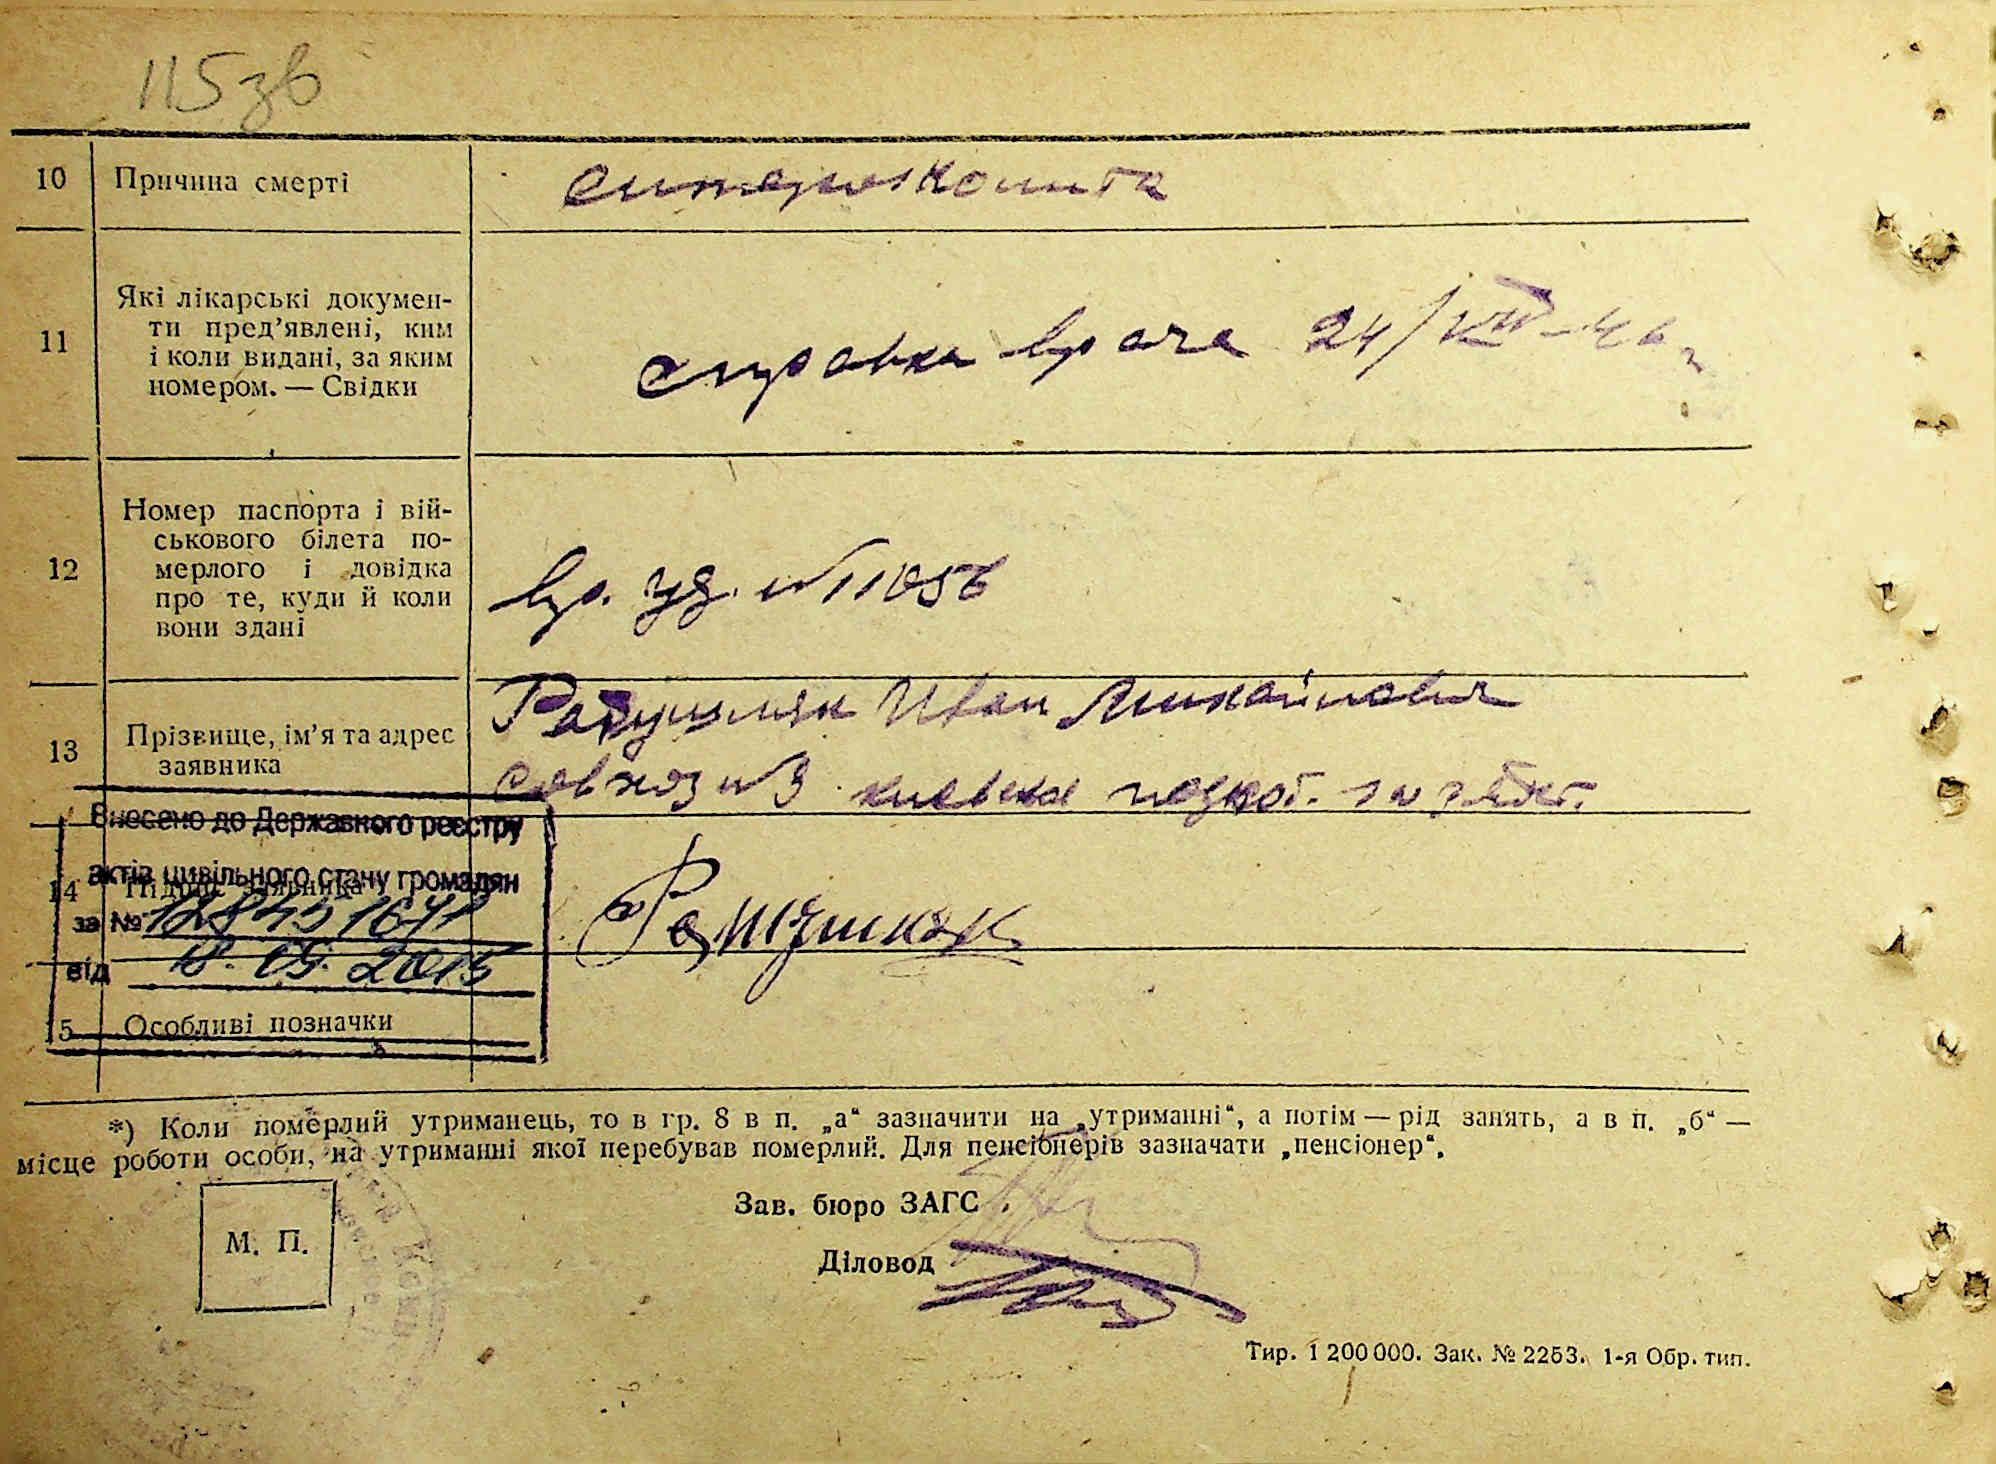 115 зв
10 Причина смерті
11 Які лікарські докумен-
ти пред’явлені, ким
і коли видані, за яким
номером. — Свідки
справка врача 24/VIII-46 г
12 Номер паспорта і вій-
ськового білета по-
мерлого і довідка
про те, куди й коли
вони здані
вр. уд. №11056
13 Прізвище, ім’я та адрес
заявника
Иван Михайлович
совхоз №3
Внесено до Державного реєстру
актів цивільного стану громадян
14 Підпис заявника
за №
від 18.09.2015
15 Особливі позначки
*) Коли померлий утриманець, то в гр. 8 в п. „а“ зазначити на „утриманні“, а потім — рід занять, а в п. „б“ —
місце роботи особи, на утриманні якої перебував померлий. Для пенсіонерів зазначати „пенсіонер“.
Зав. бюро ЗАГС
М. П.
Діловод
Тир. 1 200 000. Зак. № 2253. 1-я Обр. тип.